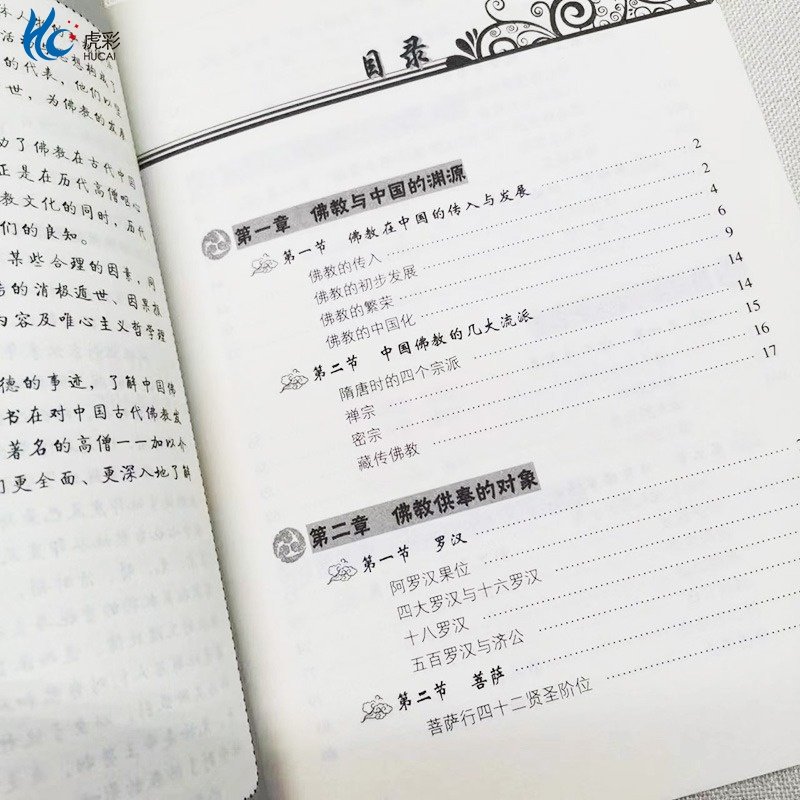 虎彩
HUCAI
的代表，他们以坚
世，为佛教的发展
动了佛教在古代中国
正是在历代高僧呕心
教文化的同时，历代
们的良知。
某些合理的因素，同
的消极遁世、因果报
内容及唯心主义哲学理
德的事迹，了解中国佛
书在对中国古代佛教发
著名的高僧一一加以介
们更全面、更深入地了解
目录
第一章 佛教与中国的渊源
第一节 佛教在中国的传入与发展 2
佛教的传入 2
佛教的初步发展 4
佛教的繁荣 6
佛教的中国化 9
第二节 中国佛教的几大流派 14
隋唐时的四个宗派 14
禅宗 15
密宗 16
藏传佛教 17
第二章 佛教供奉的对象
第一节 罗汉
阿罗汉果位
四大罗汉与十六罗汉
十八罗汉
五百罗汉与济公
第二节 菩萨
菩萨行四十二贤圣阶位